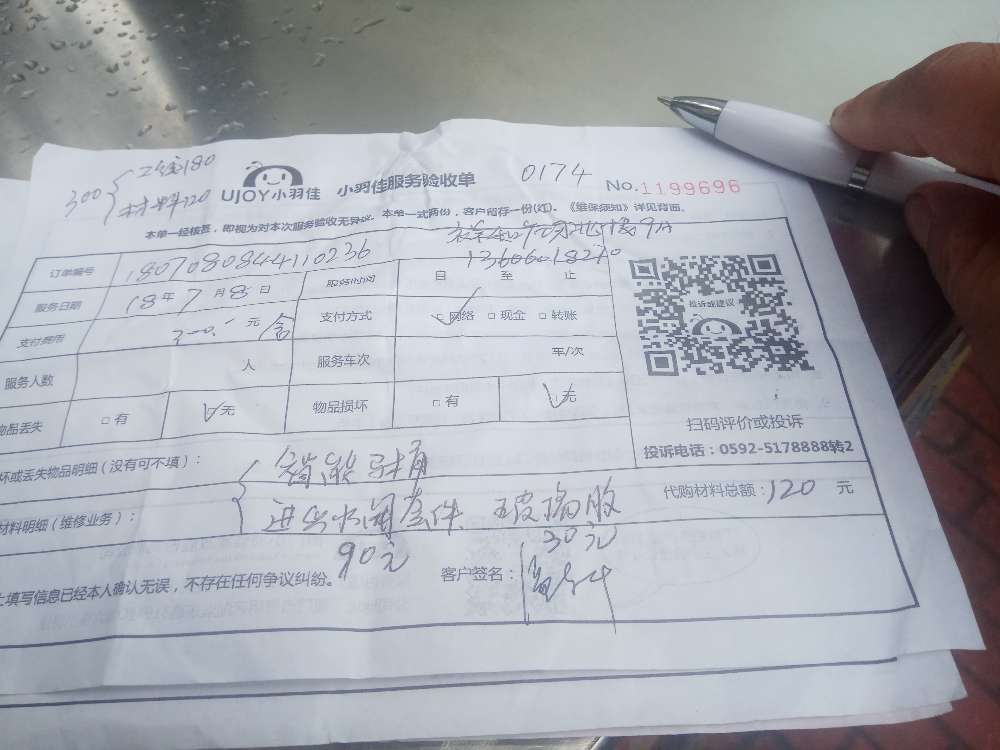 300 { 工钱180
材料120
UJOY小羽佳 小羽佳服务验收单 0174 No.1199696
本单一经核甚，即视为对本次服务验收无异议。本单一式两份，客户留存一份(红)。《维保须知》详见背面。
订单编号 1807080844110236
13606018270
服务日期 18年7月8日 服务时间 自 至 止
支付费用 元 含 支付方式 ☑网络 □现金 □转账
投诉或建议
服务人数 人 服务车次 车/次
物品丢失 □有 ☑无 物品损坏 □有 ☑无
扫码评价或投诉
投诉电话：0592-5178888转2
坏或丢失物品明细（没有可不填）：
材料明细（维修业务）： 进出水阀套件 玻璃胶 代购材料总额：120元
90元 30元
上填写信息已经本人确认无误，不存在任何争议纠纷。 客户签名：